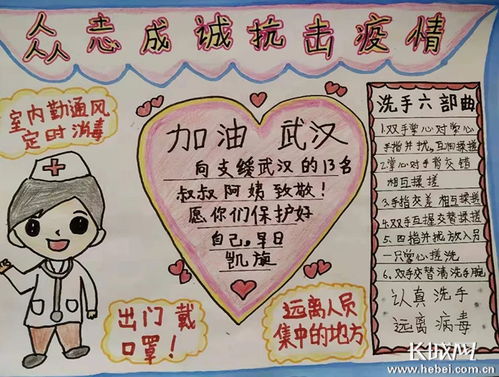 众志成诚抗击疫情
室内勤通风
定时消毒
加油 武汉
向支缓武汉的13名
叔叔阿姨致敬!
愿你们保护好
自己。早日
凯旋
出门戴
口罩!
远离人员
集中的地方
洗手六部曲
1.双手掌心对掌心
手指并拢,互相揉搓
2.掌心对手背交错
相互揉搓
3.手指交差 相互揉搓
4.双手互握交替揉搓
5.四指并拢放入另
一只掌心搓洗
6、双手交替清洗手腕
认真洗手
远离病毒
长城网
www.hebei.com.cn